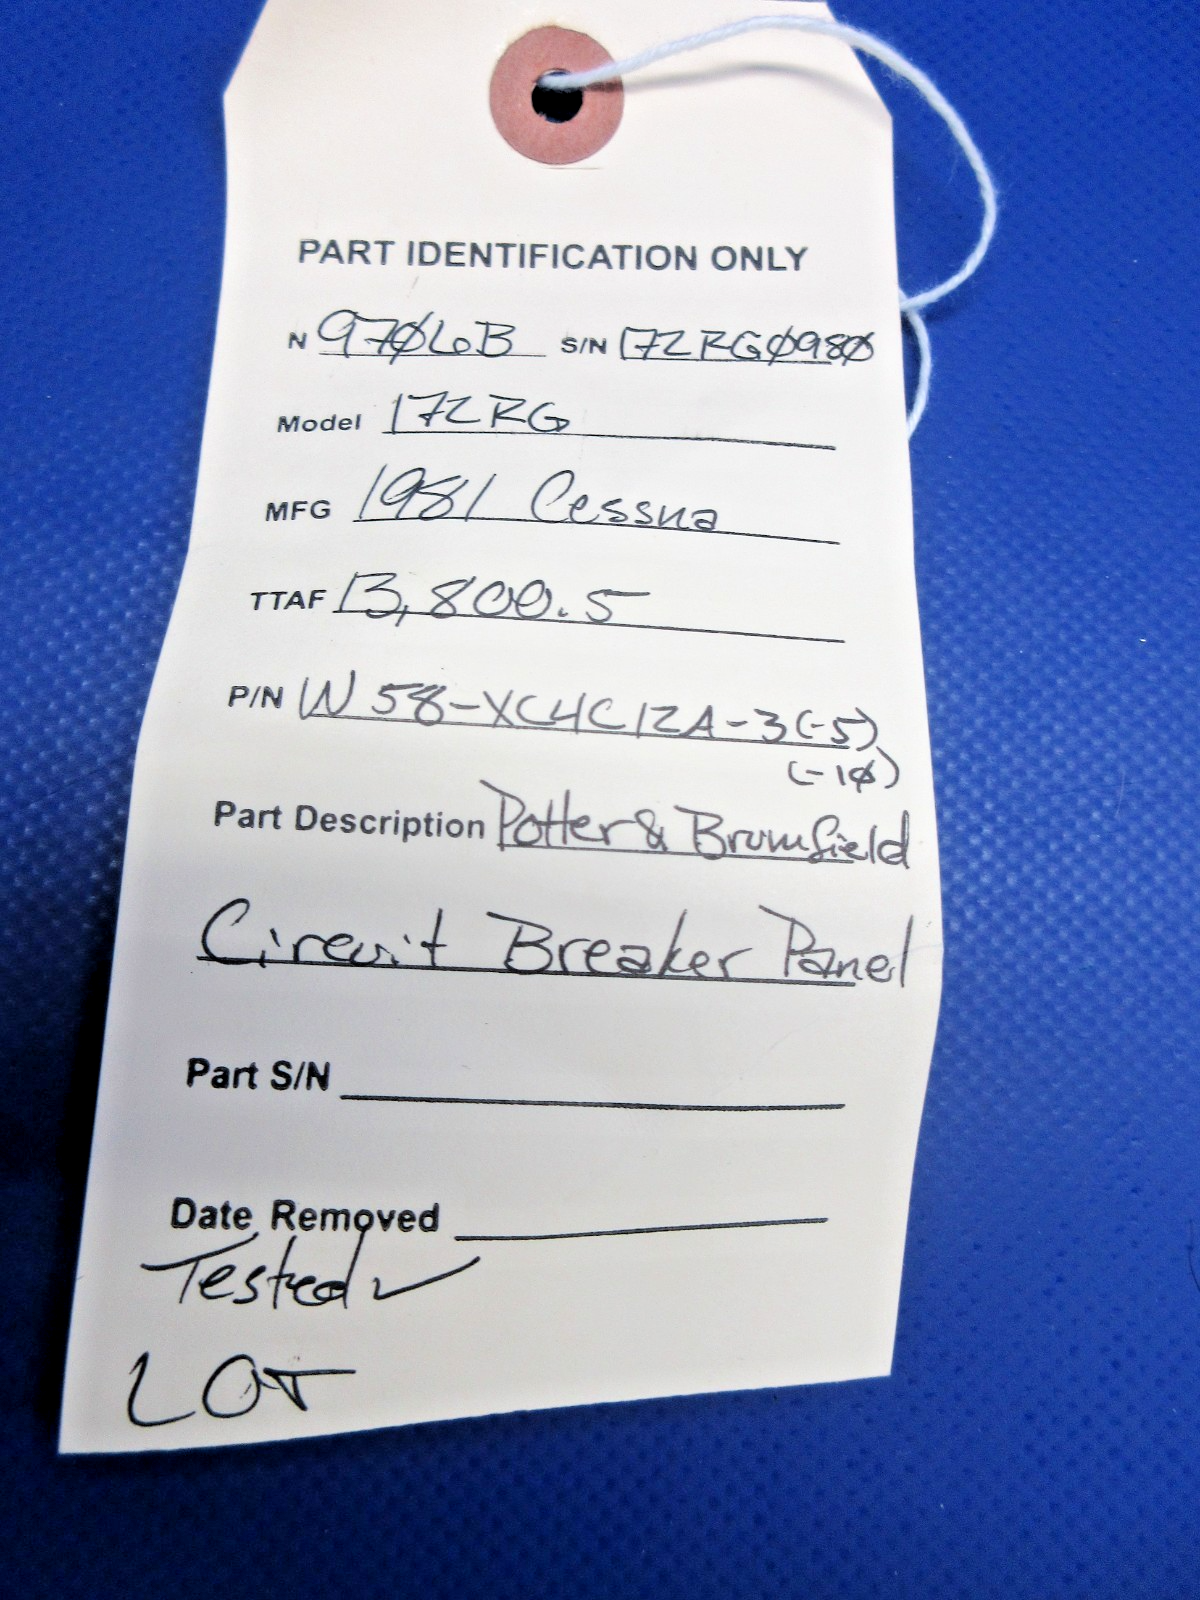 PART IDENTIFICATION ONLY
N 97Ø6B S/N 172RGØ98Ø
Model 172RG
MFG 1981 Cessna
TTAF 13,800.5
P/N W58-XC4C12A-3(-5)
(-1Ø)
Part Description Potter & Brumfield
Circuit Breaker Panel
Part S/N
Date Removed
Tested ✓
LOT